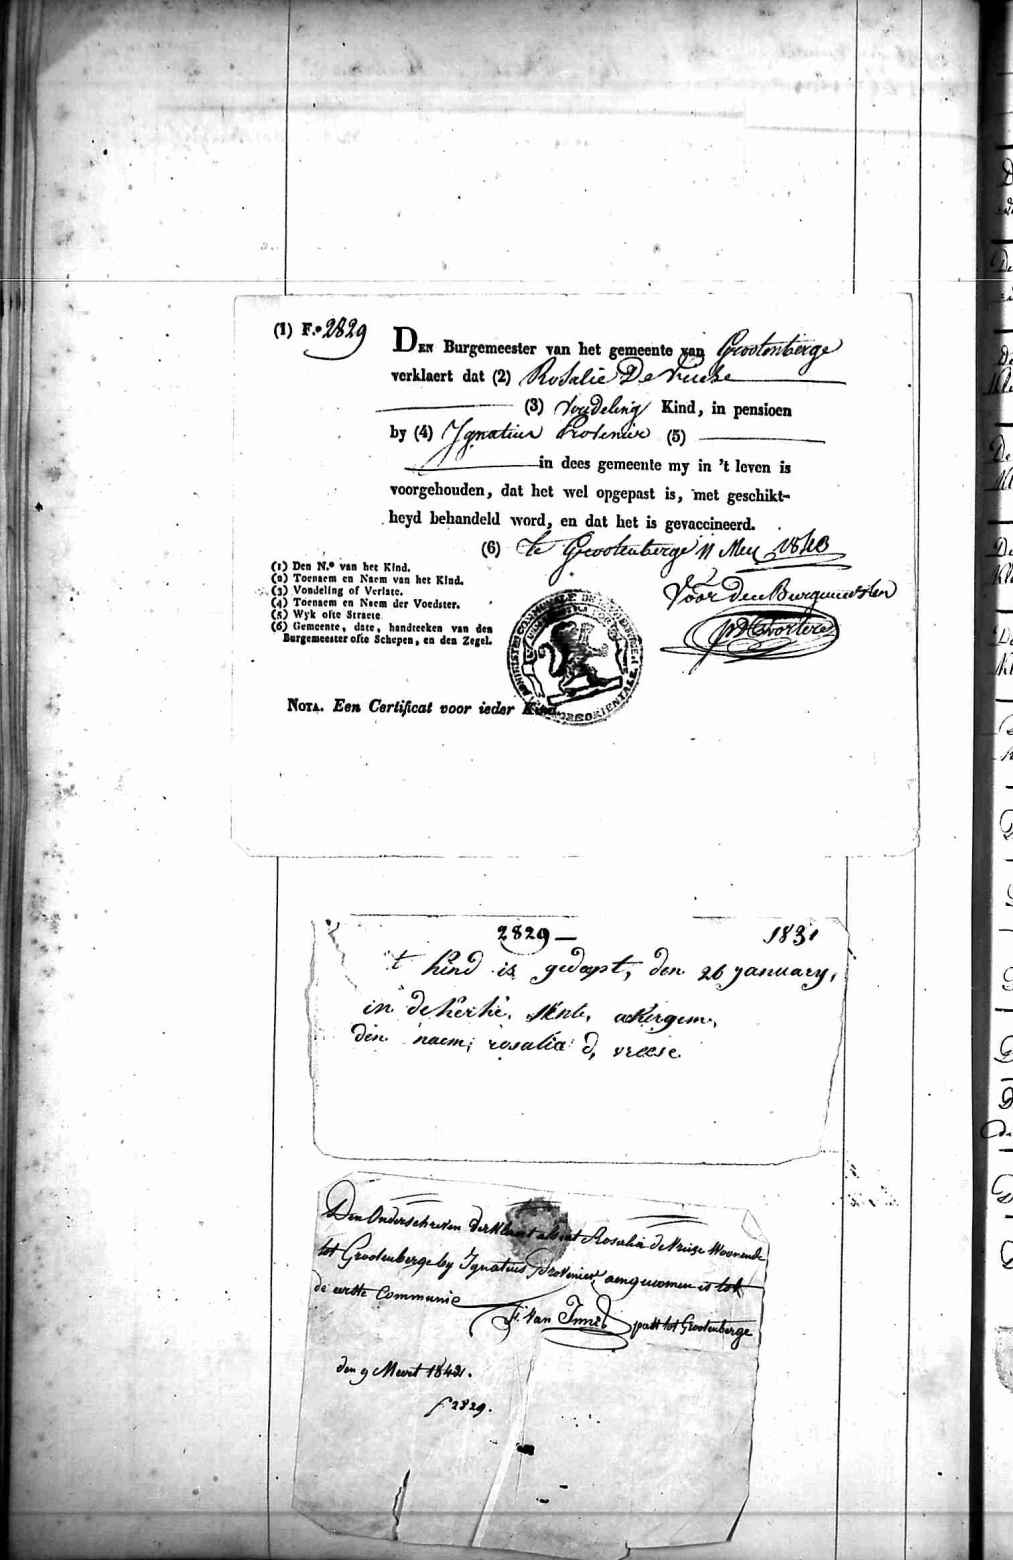 (1) F.º 2829
DEN Burgemeester van het gemeente van Grootenberge
verklaert dat (2) Rosalie De Vriese
(3) vondeling Kind, in pensioen
by (4) Ignatius Provenier (5)
in dees gemeente my in 't leven is
voorgehouden, dat het wel opgepast is, met geschikt-
heyd behandeld word, en dat het is gevaccineerd.
(6) te Grootenberge 11 Mey 1840
(1) Den N.º van het Kind.
(2) Toenaem en Naem van het Kind.
(3) Vondeling of Verlate.
(4) Toenaem en Naem der Voedster.
(5) Wyk ofte Straete
(6) Gemeente, date, handteeken van den
Burgemeester ofte Schepen, en den Zegel.
Voor den Burgemeester
NOTA. Een Certificat voor ieder Kind.
2829 — 1831
't kind is gedopt, den 26 january,
in de kerke, akkergem,
den naem, rosalia d, vreese
Den Onderschreven verklaert als dat Rosalia de Vriese Woonende
tot Grootenberge by Ignatius Provenier aengenomen is tot
de eerste Communie
F. Van past tot Grootenberge
den 9 Meert 1842.
f 2829.